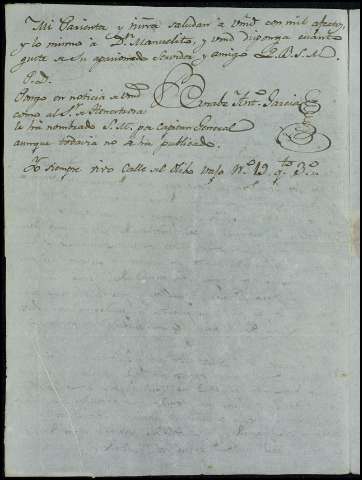 Mi Parienta y niña saludan a vmd con mil afectos,
y lo mismo a Dn. Manuelito, y vmd disponga cuanto
guste de su apasionado Servidor y amigo Q. B. S. M.
P.d.
Pongo en noticia de vmd
Ant. Garcia
como al Sr. de
le ha nombrado S. M. por Capitan General
aunque todavia no se ha publicado.
Yo siempre vivo Calle del Olibo vajo No. 19 qto. 3o.